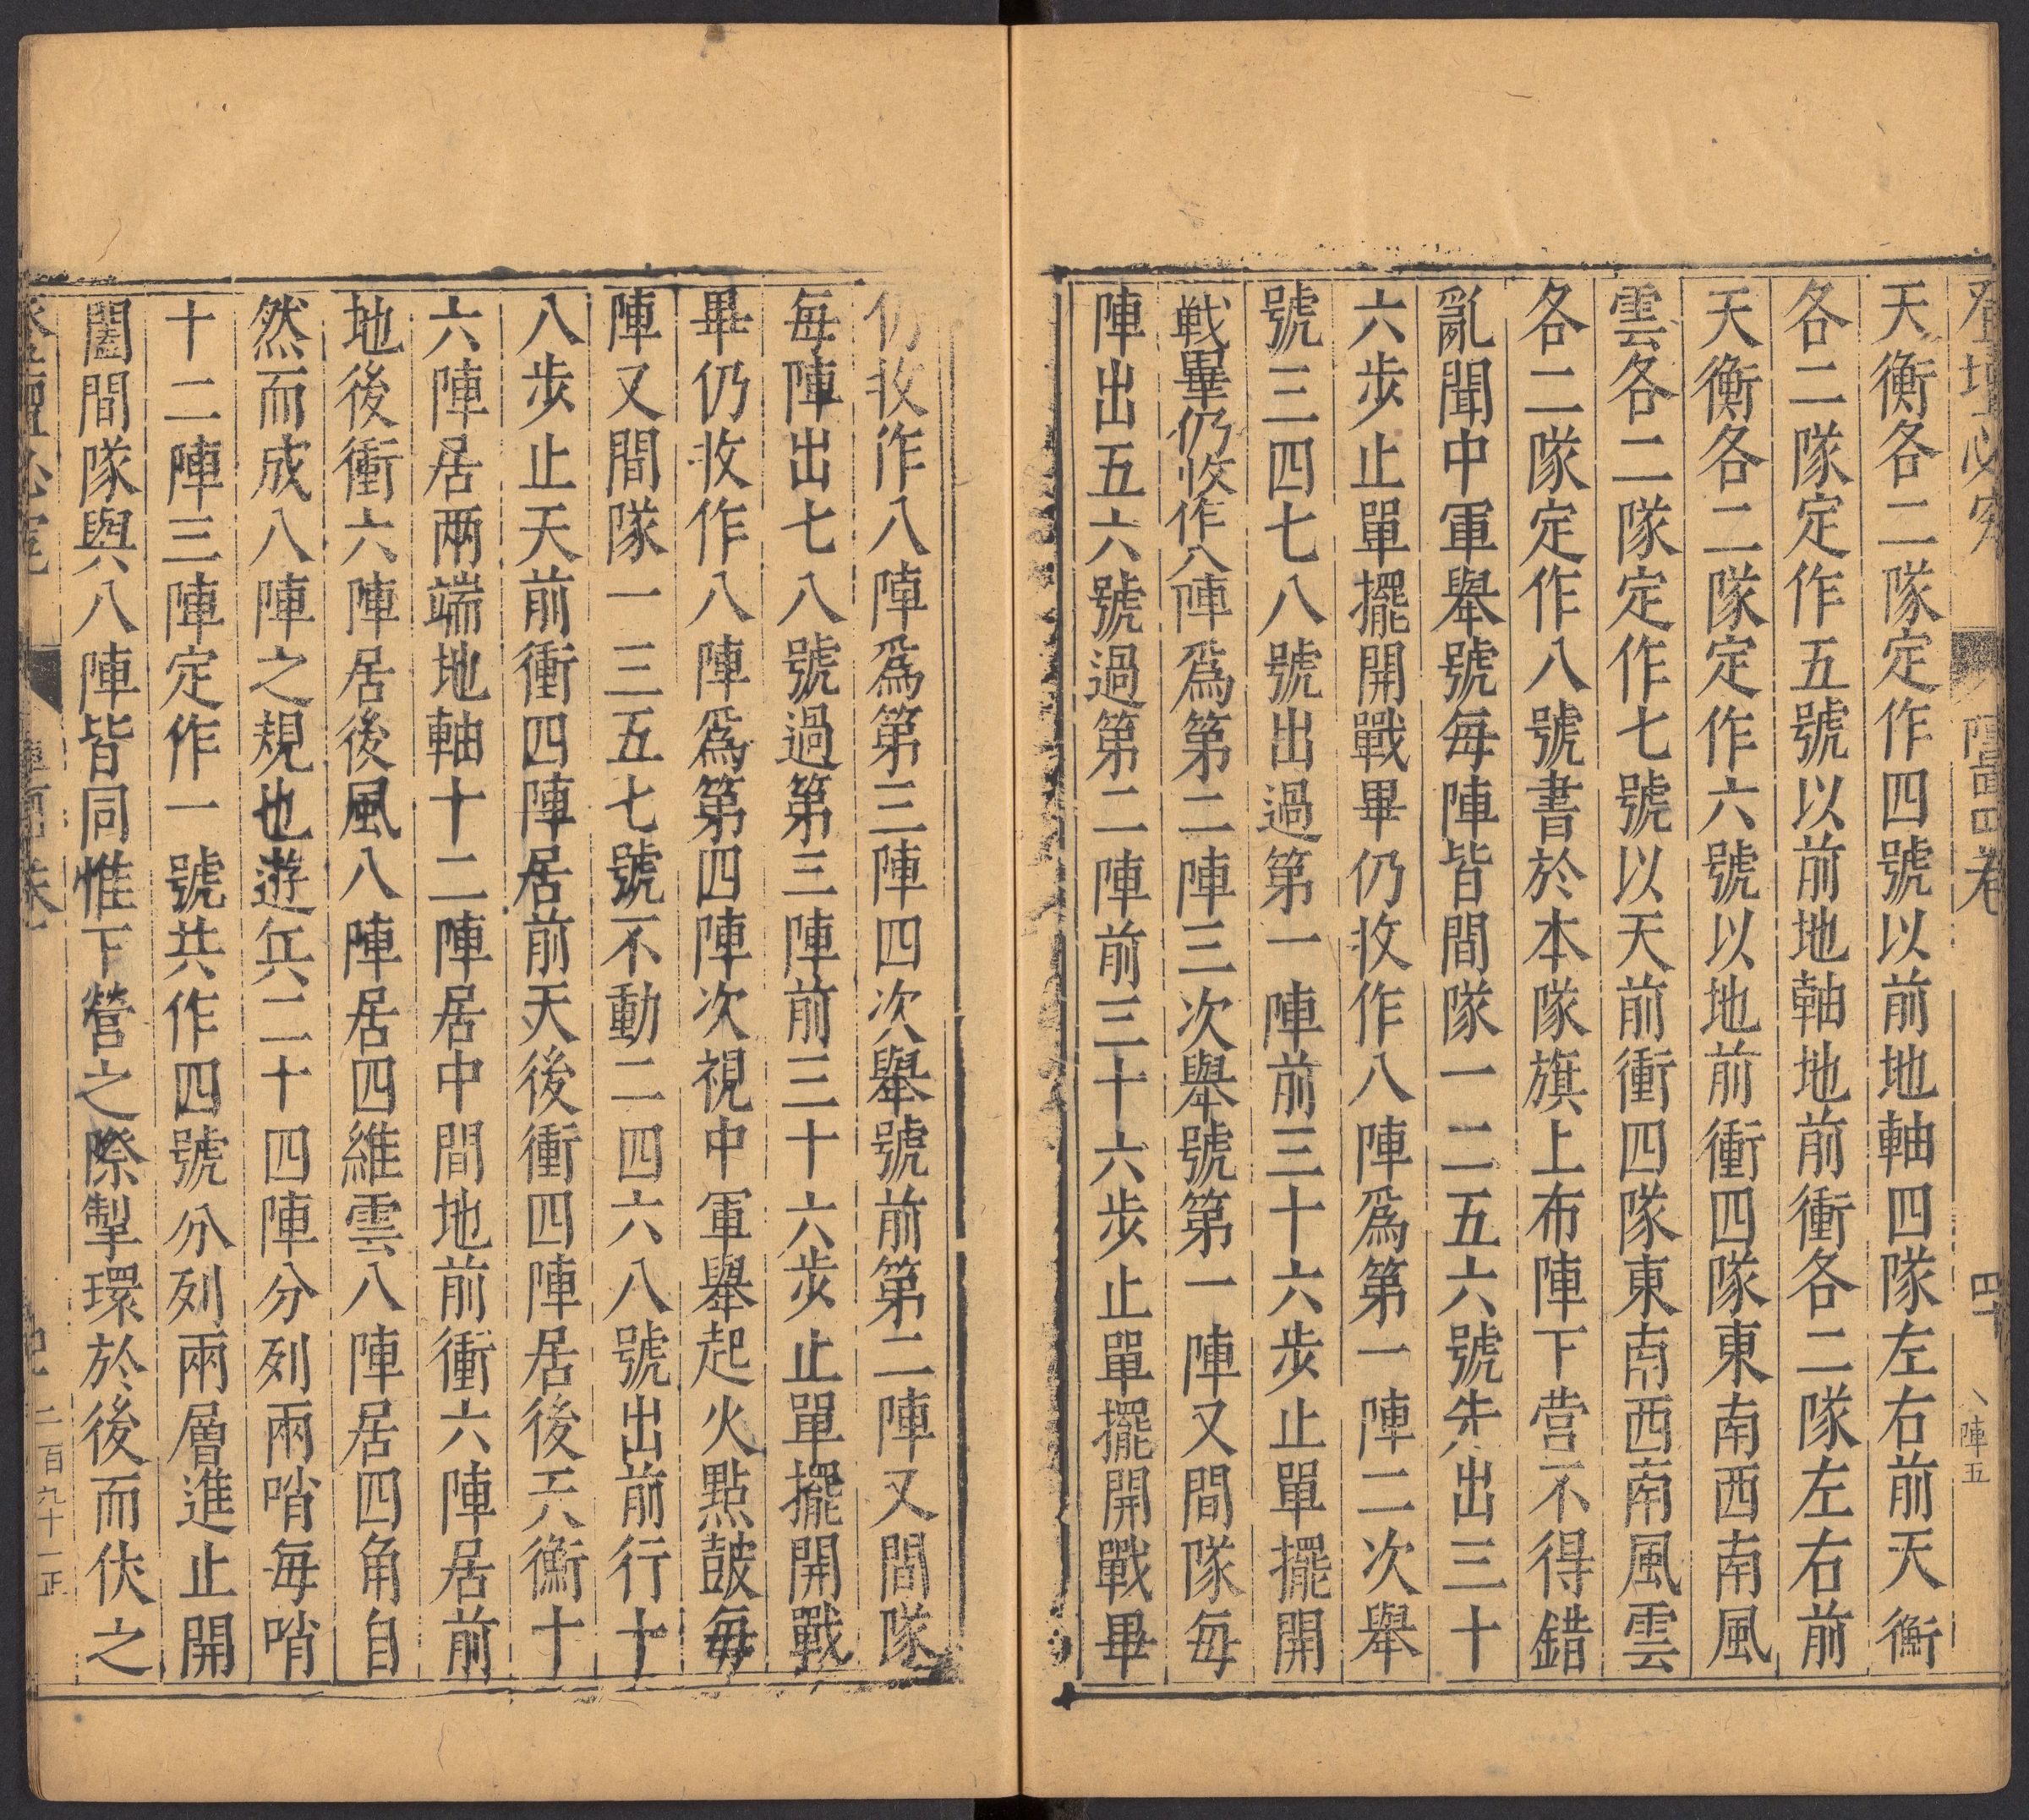 登壇必究 陣啚四卷 四十 陣五
天衡各二隊定作四號以前地軸四隊左右前天衡
各二隊定作五號以前地軸地前衝各二隊左右前
天衡各二隊定作六號以地前衝四隊東南西南風
雲各二隊定作七號以天前衝四隊東南西南風雲
各二隊定作八號書於本隊旗上布陣下营不得錯
亂聞中軍舉號每陣皆間隊一二五六號先出三十
六步止單擺開戰畢仍收作八陣爲第一陣二次舉
號三四七八號出過第一陣前三十六步止單擺開
戰畢仍收作八陣爲第二陣三次舉號第一陣又間隊每
陣出五六號過第二陣前三十六步止單擺開戰畢
仍收作八陣爲第三陣四次舉號前第二陣又間隊
每陣出七八號過第三陣前三十六步止單擺開戰
畢仍收作八陣爲第四陣次視中軍舉起火點鼓每
陣又間隊一三五七號不動二四六八號出前行十
八步止天前衝四陣居前天後衝四陣居後天衡十
六陣居兩端地軸十二陣居中間地前衝六陣居前
地後衝六陣居後風八陣居四維雲八陣居四角自
然而成八陣之規也遊兵二十四陣分列兩哨每哨
十二陣三陣定作一號共作四號分列兩層進止開
闔間隊與八陣皆同惟下營之際掣環於後而伏之
二百九十一正